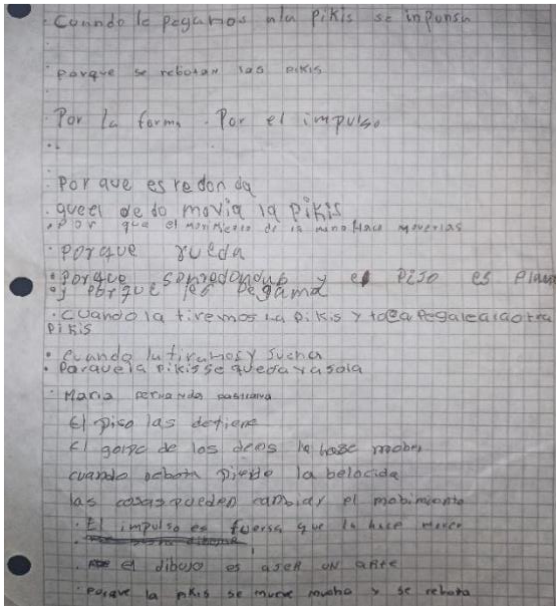 · Cuando le pegamos ala pikis se inponsa
porque se rebotan las pikis
· Por la forma · Por el impulso
· Por que es redonda
· que el dedo movia la pikis
· por que el movimiento de la mano hace moverlas
· Porque rueda
· Porque son redondas y el piso es plano
y porque les pegama
· Cuando la tiremos la pikis y toca pegale a la otra
pikis
· Cuando la tiramos y suena
· Para que la pikis se queda ya sola
· Maria fernanda
El piso las detiene
El golpe de los dems la hase mober
cuando rebota pierde la belocida
las cosas pueden cambiar el mobimiento
· El impulso es fuersa que la hace mover
el dibujo es aser un arte
· Porque la pikis se mueve mucho y se rebota